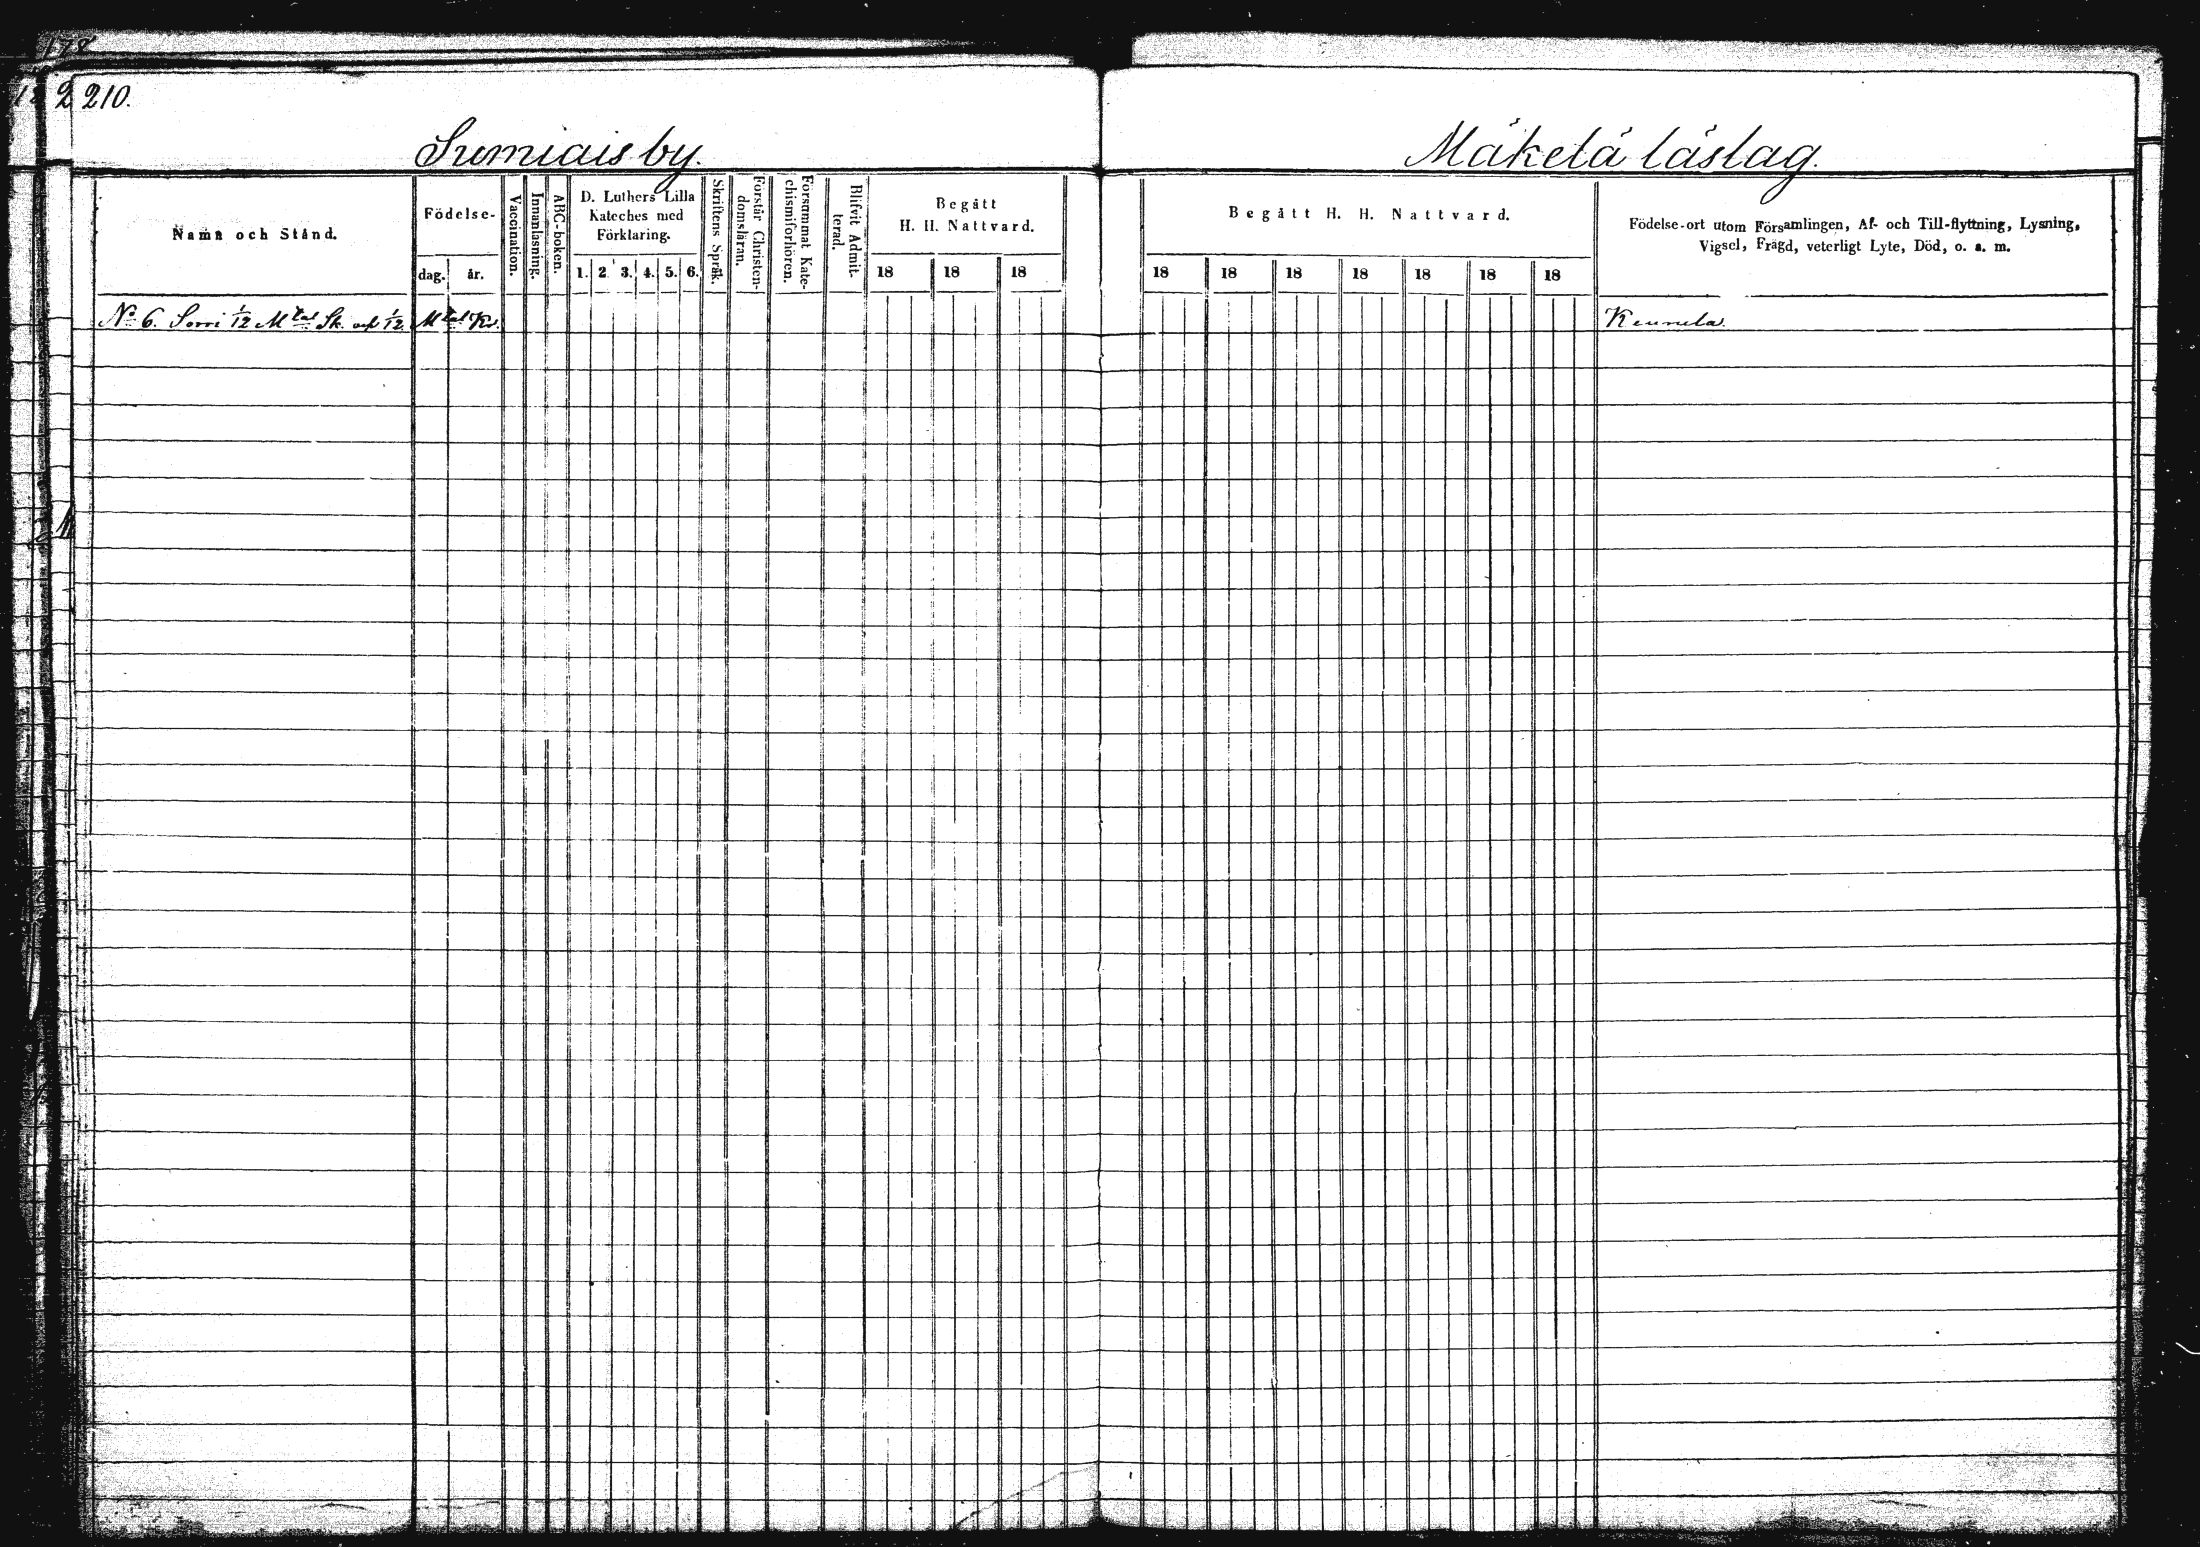 178
2 210.
Sumiais by.
Mäkelä läslag.
Namn och Stånd.
Födelse-
dag.
år.
Vaccination.
Innanläsning.
ABC-boken.
D. Luthers Lilla
Kateches med
Förklaring.
1. 2. 3. 4. 5. 6.
Skriftens Språk.
Förstår Christen-
domsläran.
Försummat Kate-
chismiförhören.
Blifvit Admit-
terad.
Begått
H. H. Nattvard.
18 18 18
Begått H. H. Nattvard.
18 18 18 18 18 18 18
Födelse-ort utom Församlingen, Af- och Till-flyttning, Lysning,
Vigsel, Frägd, veterligt Lyte, Död, o. s. m.
No 6. Sorri 1/12 Mtal Sk. och 1/12 Mtal Kr.